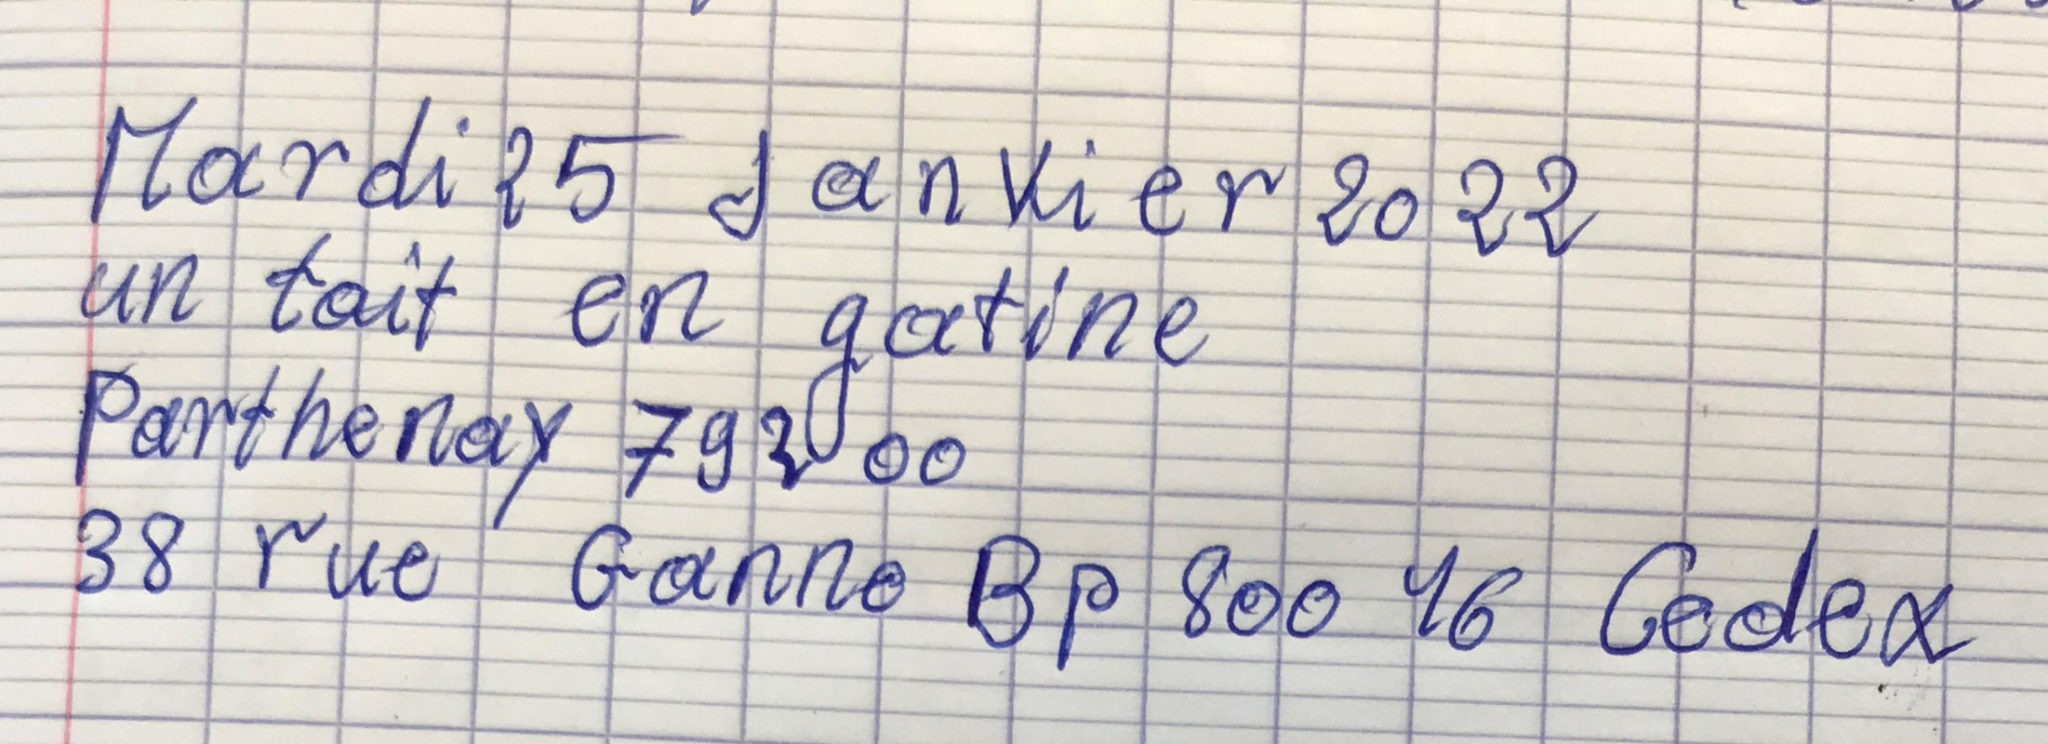 Mardi 25 Janvier 2022
un tait en gatine
Parthenay 79200
38 rue Ganne Bp 800 46 Cedex